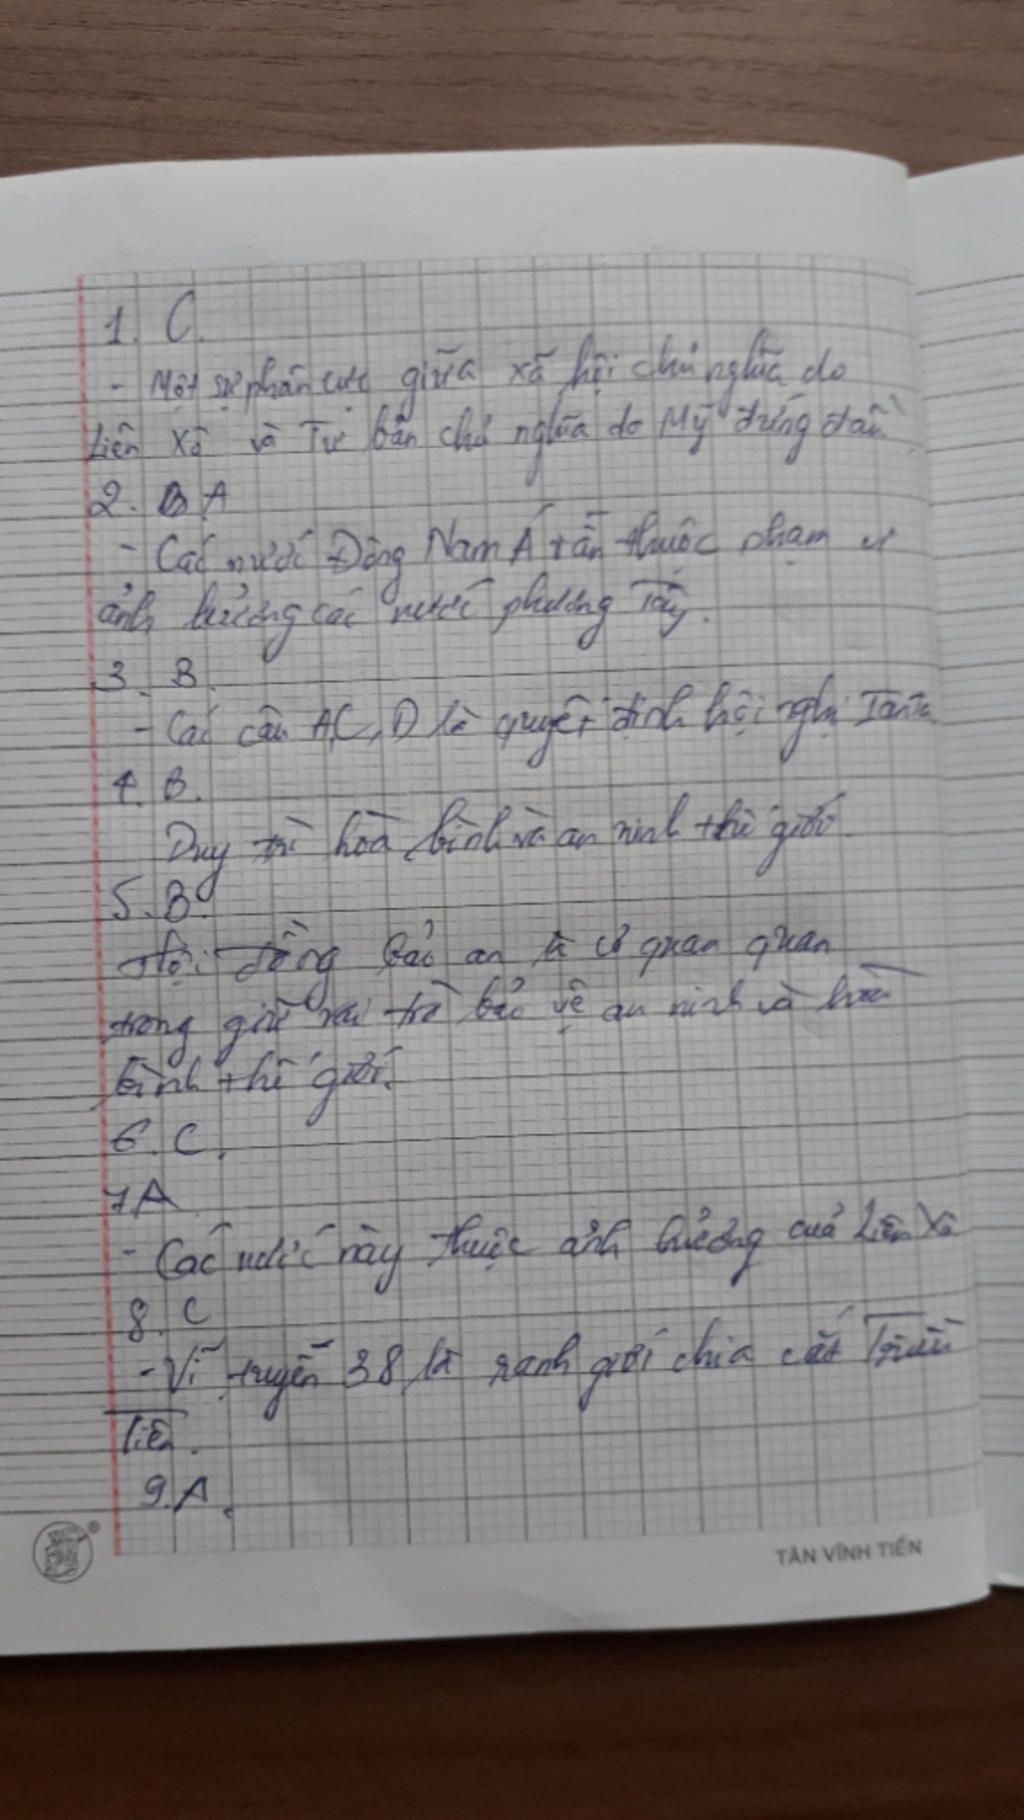 1. C.
- Một sự phân cực giữa xã hội chủ nghĩa do
Liên Xô và Tư bản chủ nghĩa do Mỹ đứng đầu
2. A
- Các nước Đông Nam Á vẫn thuộc phạm vi
ảnh hưởng các nước phương Tây.
3. B.
- Các câu A, C, D là quyết định hội nghị Ianta
4. B.
Duy trì hoà bình và an ninh thế giới
5. B.
Hội đồng bảo an là cơ quan quan
trọng giữ vai trò bảo vệ an ninh và hoà
bình thế giới.
6. C.
7 A
- Các nước này thuộc ảnh hưởng của Liên Xô
8. C
- Vĩ tuyến 38 là ranh giới chia cắt Triều
Tiên.
9. A.
TÂN VĨNH TIẾN